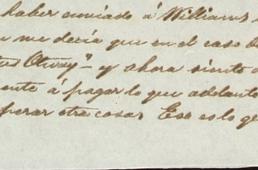 haber enviado á Williams
me decía que en el caso de
y ahora siento
ente á pagar lo que adelant
perar otra cosa. Eso es lo q